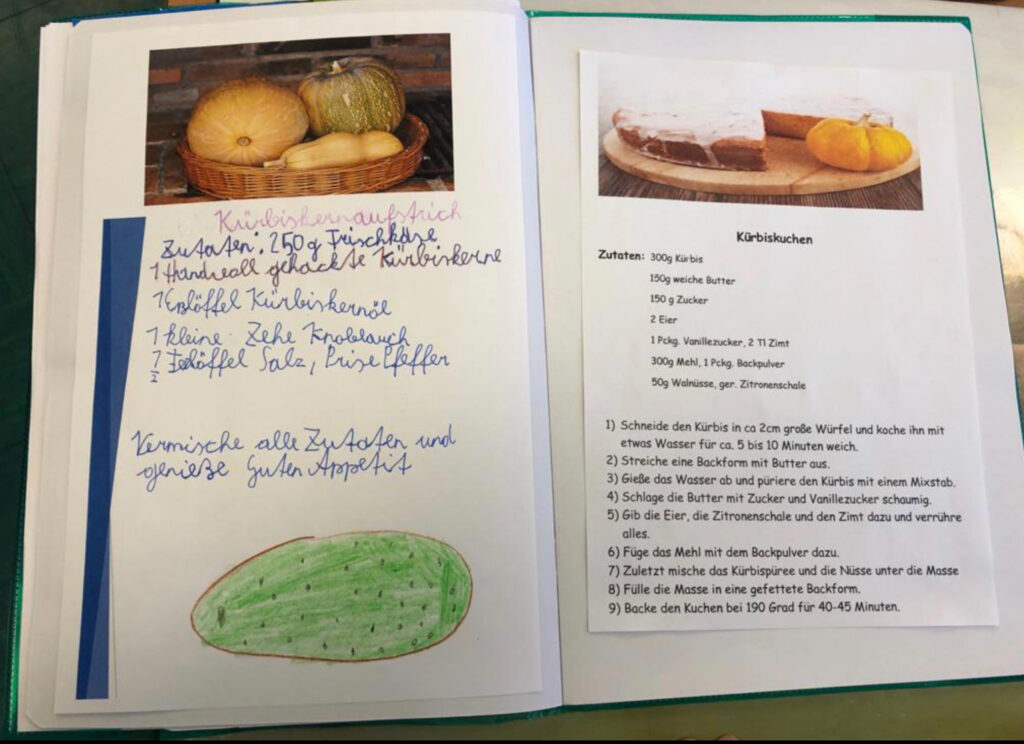 Kürbiskernaufstrich
Zutaten: 250g Frischkäse
1 Handvoll gehackte Kürbiskerne
1 Esslöffel Kürbiskernöl
1 kleine Zehe Knoblauch
1/2 Teelöffel Salz, Prise Pfeffer
Vermische alle Zutaten und
genieße Guten Appetit
Kürbiskuchen
Zutaten: 300g Kürbis
150g weiche Butter
150 g Zucker
2 Eier
1 Pckg. Vanillezucker, 2 Tl Zimt
300g Mehl, 1 Pckg. Backpulver
50g Walnüsse, ger. Zitronenschale
1) Schneide den Kürbis in ca 2cm große Würfel und koche ihn mit
etwas Wasser für ca. 5 bis 10 Minuten weich.
2) Streiche eine Backform mit Butter aus.
3) Gieße das Wasser ab und püriere den Kürbis mit einem Mixstab.
4) Schlage die Butter mit Zucker und Vanillezucker schaumig.
5) Gib die Eier, die Zitronenschale und den Zimt dazu und verrühre
alles.
6) Füge das Mehl mit dem Backpulver dazu.
7) Zuletzt mische das Kürbispüree und die Nüsse unter die Masse
8) Fülle die Masse in eine gefettete Backform.
9) Backe den Kuchen bei 190 Grad für 40-45 Minuten.